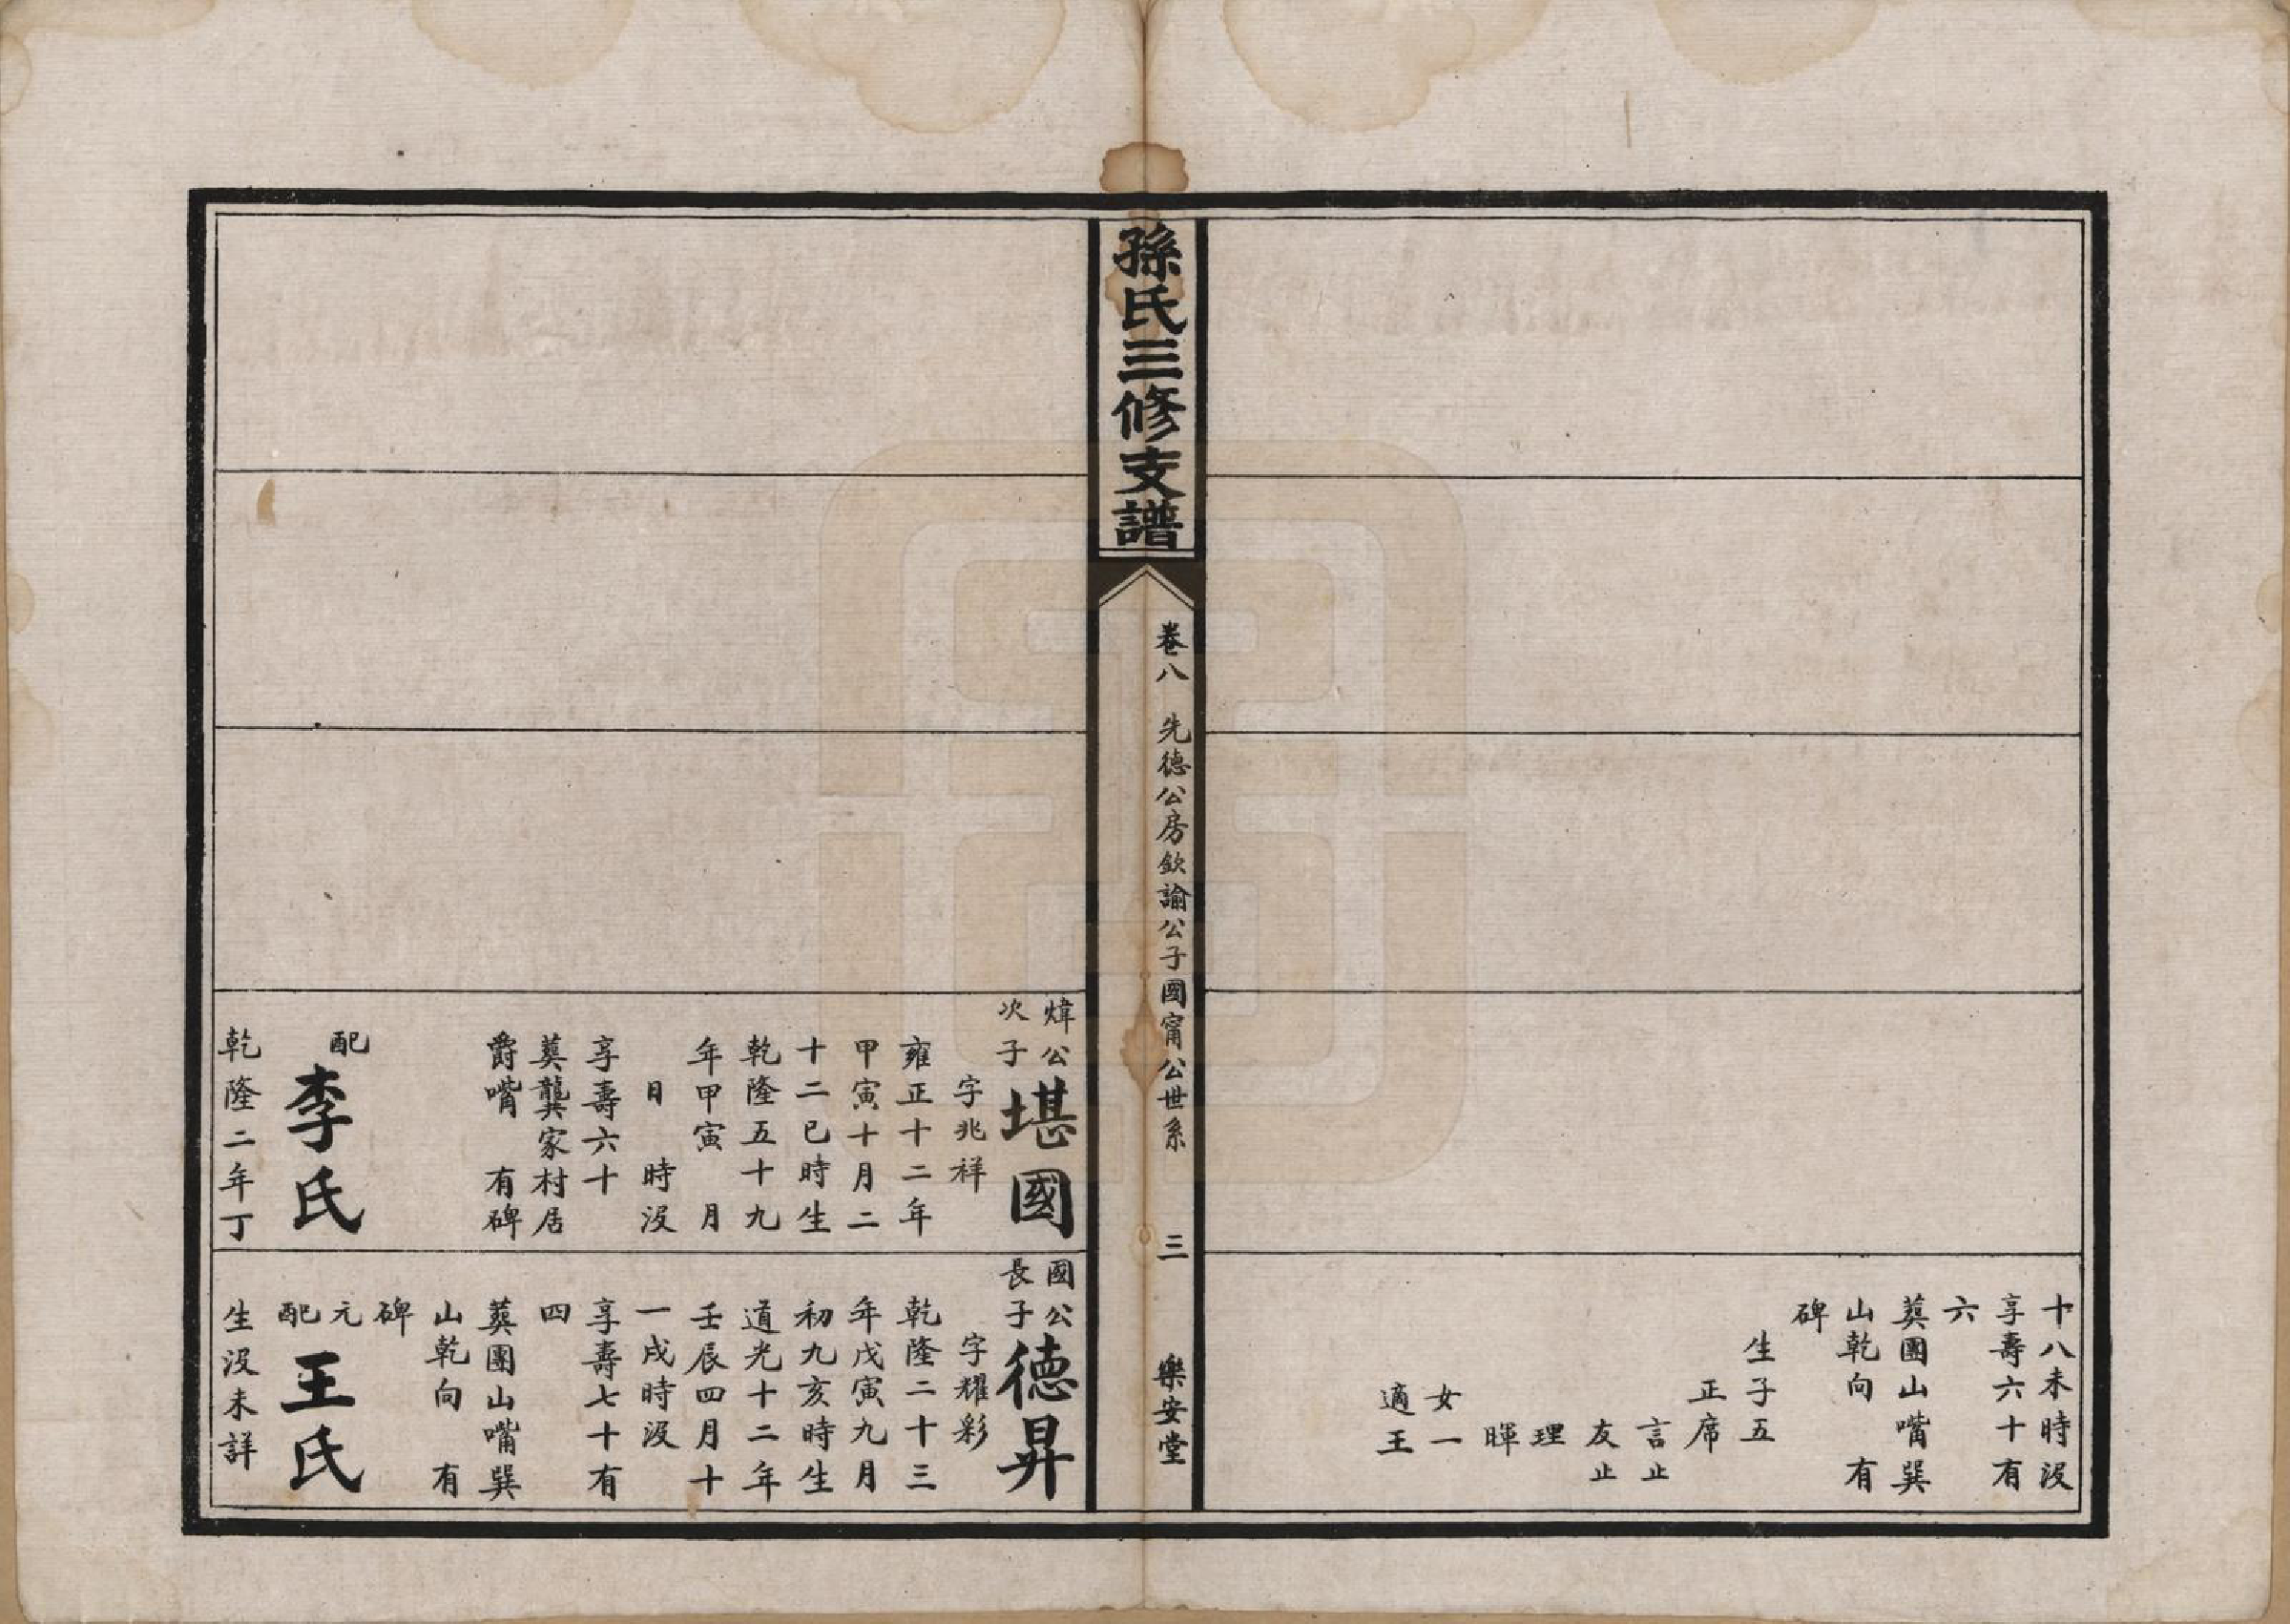 十八未時沒
享壽六十有
六
葬團山嘴巽
山乾向　有
碑
生子五
正席
言止
友止
理
暉
女一
適王
孫氏三修支譜
卷八　先德公房欽諭公子國甯公世系　三　樂安堂
煒公
次子
堪國
字兆祥
雍正十二年
甲寅十月二
十二巳時生
乾隆五十九
年甲寅　月
日　時沒
享壽六十
葬龔家村居
爵嘴　有碑
配
李氏
乾隆二年丁
國公
長子
德昇
字耀彩
乾隆二十三
年戊寅九月
初九亥時生
道光十二年
壬辰四月十
一戌時沒
享壽七十有
四
葬團山嘴巽
山乾向　有
碑
元
配
王氏
生沒未詳